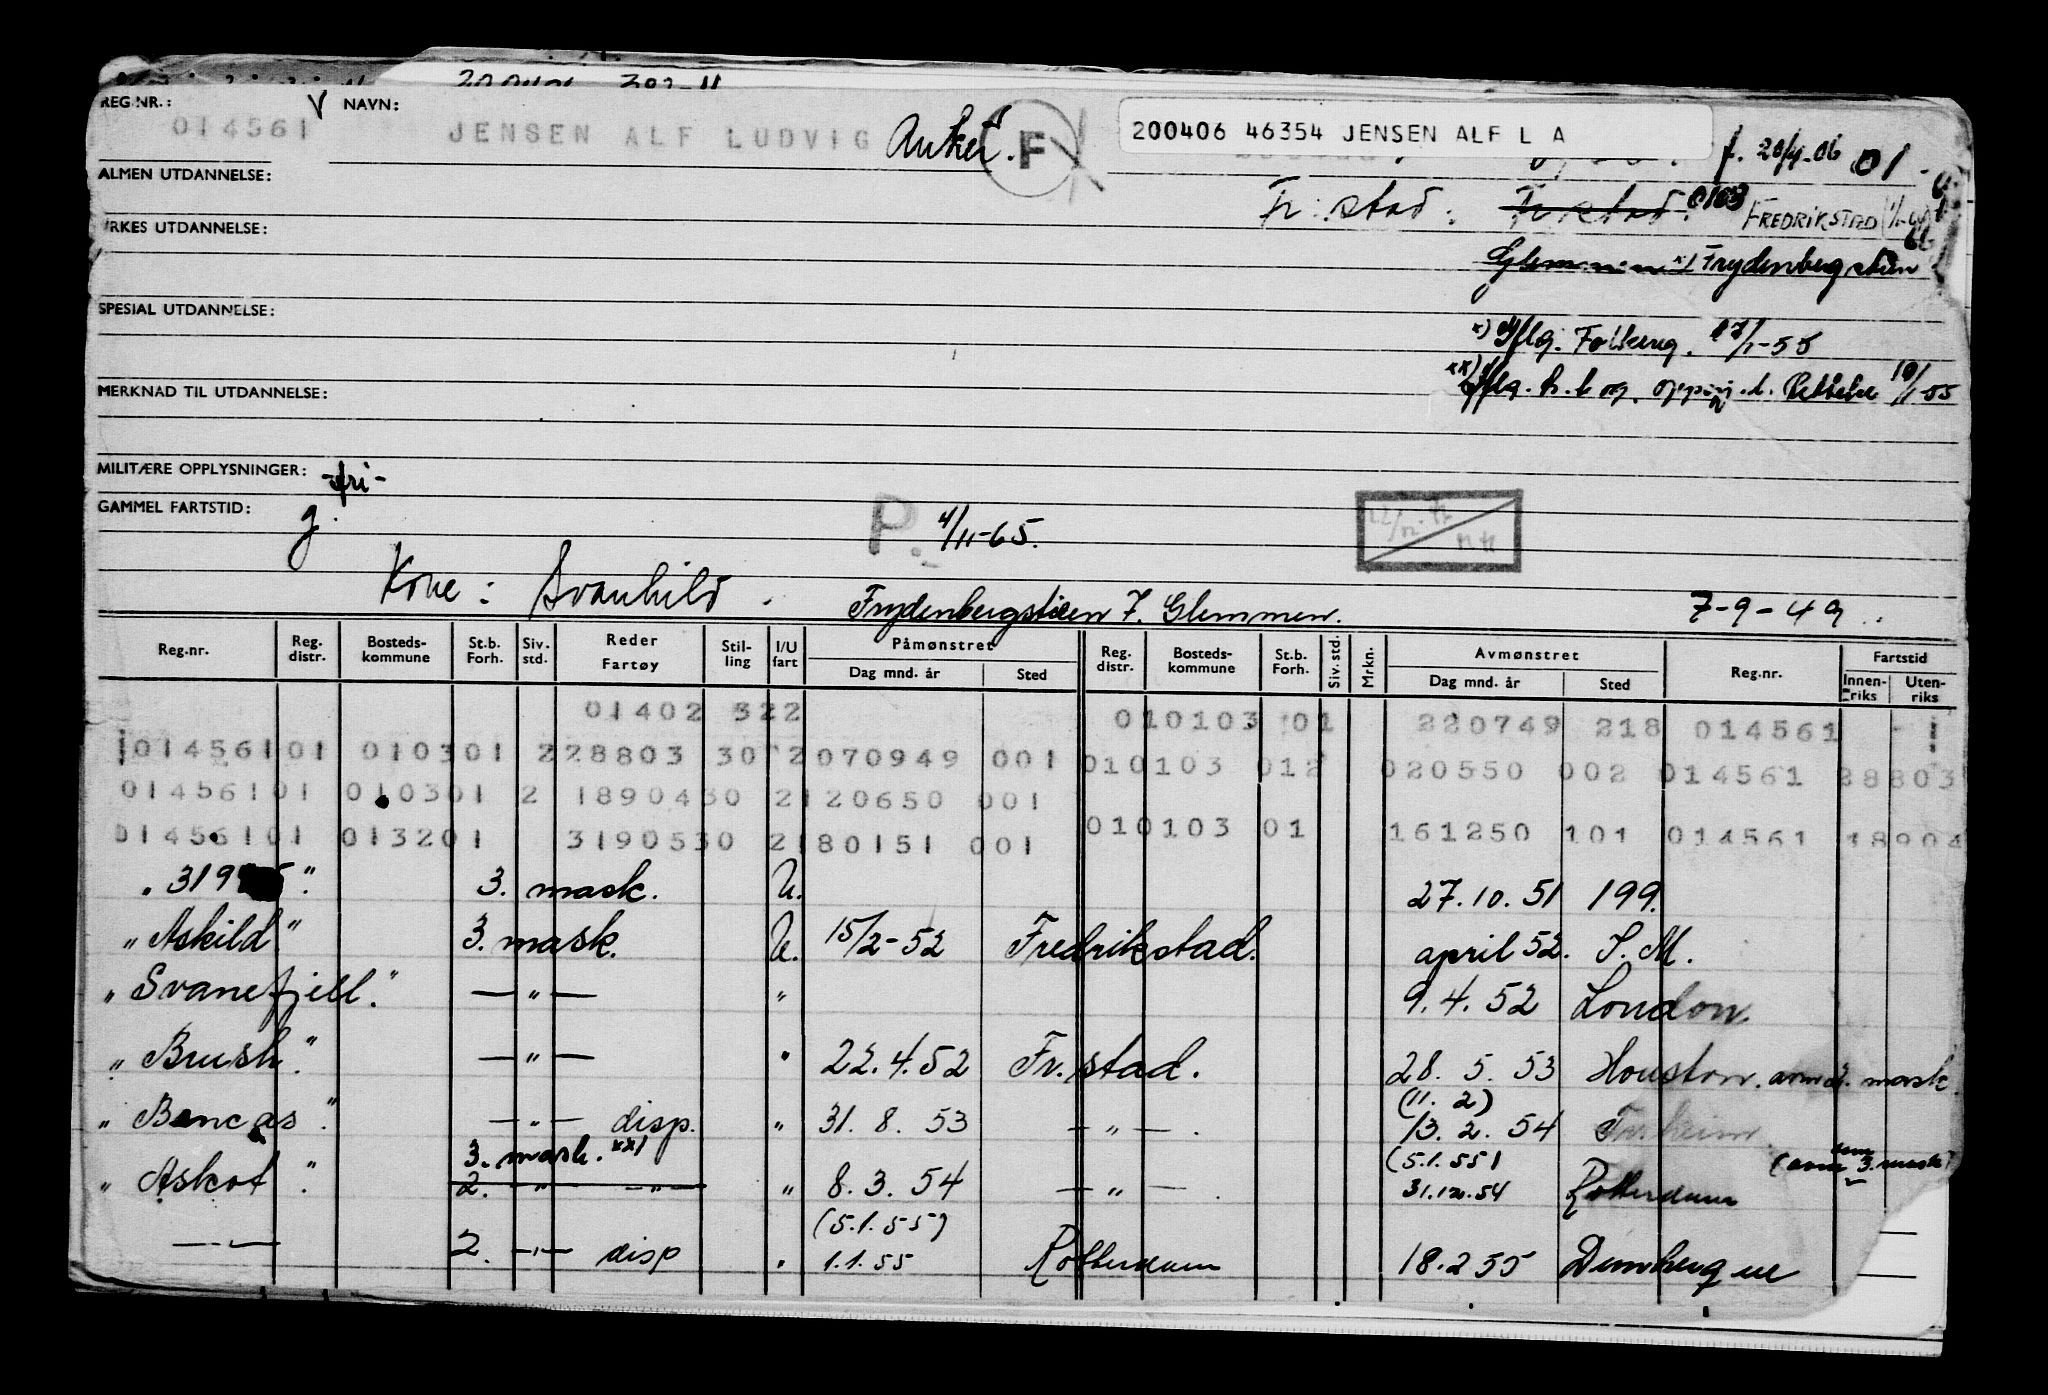 REG.NR.: V NAVN:
014561 JENSEN ALF LUDVIG Anker. F 200406 46354 JENSEN ALF L A
f. 20/4-06 01
ALMEN UTDANNELSE:
Fr.stad. Fr.stad. 0103 FREDRIKSTAD
YRKES UTDANNELSE:
Glemmen x) Frydenbergstien
SPESIAL UTDANNELSE:
x) Iflg. Folkereg. 17/1-55
MERKNAD TIL UTDANNELSE:
xx) Iflg. h.b og. 10/1-55
MILITÆRE OPPLYSNINGER: -fri-
GAMMEL FARTSTID: g.
P. 4/11-65.
Kone: Svanhild. Frydenbergstien 7. Glemmen. 7-9-49.
Reg.nr. Reg. distr. Bosteds-kommune St.b. Forh. Siv. std. Reder Fartøy Stil-ling I/U fart Påmønstret Dag mnd. år Sted Reg. distr. Bosteds-kommune St.b. Forh. Siv. std. Mrkn. Avmønstret Dag mnd. år Sted Reg.nr. Fartstid Innen-riks Uten-riks
01402 322 010103 01 220749 218 014561 - 1
01456101 010301 228803 30 2 070949 001 010103 012 020550 002 014561 28803
01456101 010301 2 1890430 2120650 001
01456101 013201 3190530 2180151 001 010103 01 161250 101 014561 18904
" 319 5" 3. mask. U. 27.10.51 199.
"Askild" 3. mask. U. 15/2-52 Fredrikstad. april 52. S.M.
"Svanefjell." — " — " 9.4.52 London.
"Brush." — " — " 22.4.52 Fr.stad. 28.5.53 Houston. mask.
(11.2)
"Bencas". — " — disp. " 31.8.53 — " — . 13.2.54
3. mask. xx) (5.1.55) 3. mask)
"Askot". 2. — " — " — " 8.3.54 — " — . 31.12.54 Rotterdam
(5.1.55)
— " — 2. — " — disp " 1.1.55 Rotterdam 18.2.55